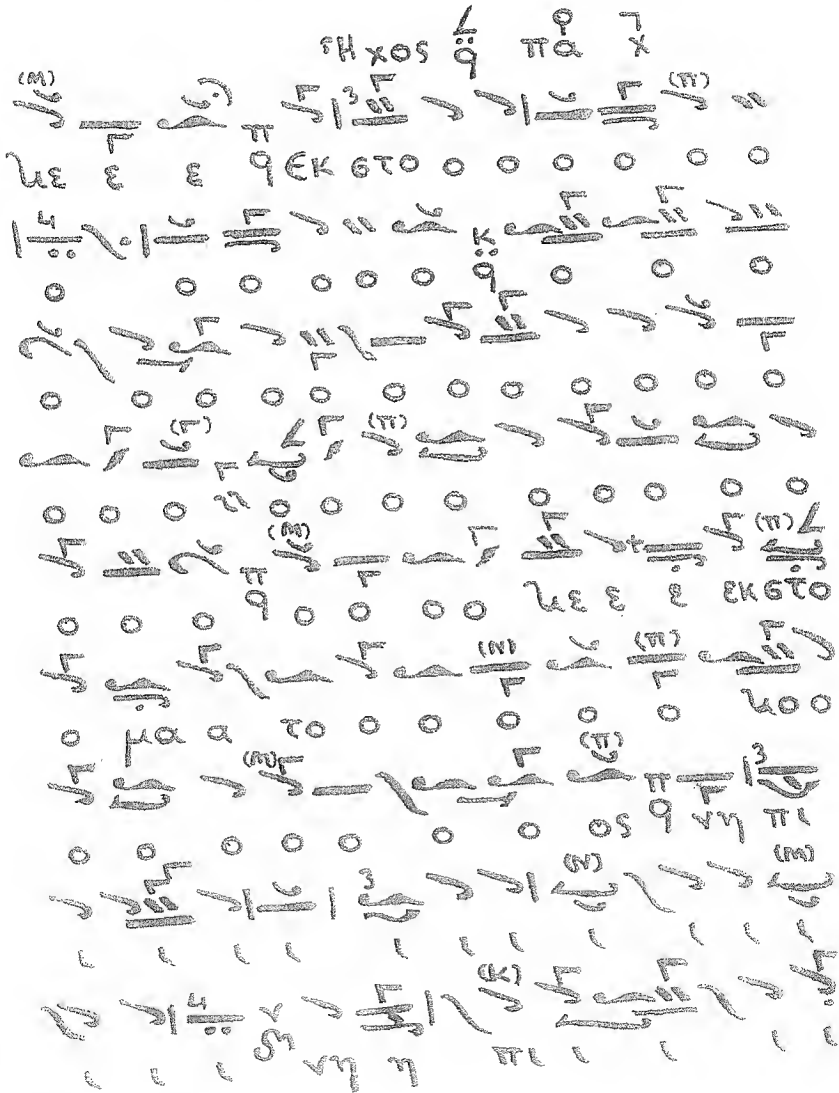 Ἦχος q̈ πα χ
(Μ) (Π)
ε ε π q Εκ στο ο ο ο ο ο ο
4
ο ο ο ο ο ο κ q̈ ο ο ο
ο ο ο ο ο ο ο ο ο ο ο ο
(Γ) (Π)
ο ο ο ο ο ο ο ο ο ο ο ο
(Μ) (Π)
ο ο ο π q ο ο ο ο ε ε εκ στο
(Ν) (Π)
ο μα α το ο ο ο ο ο ο
(Μ) (Π)
ο ο ο ο ο ο ο ος π q νη πι
(Ν) (Μ)
ι ι ι ι ι ι ι ι ι ι ι
4 (Κ)
ι ι ι νη η πι ι ι ι ι